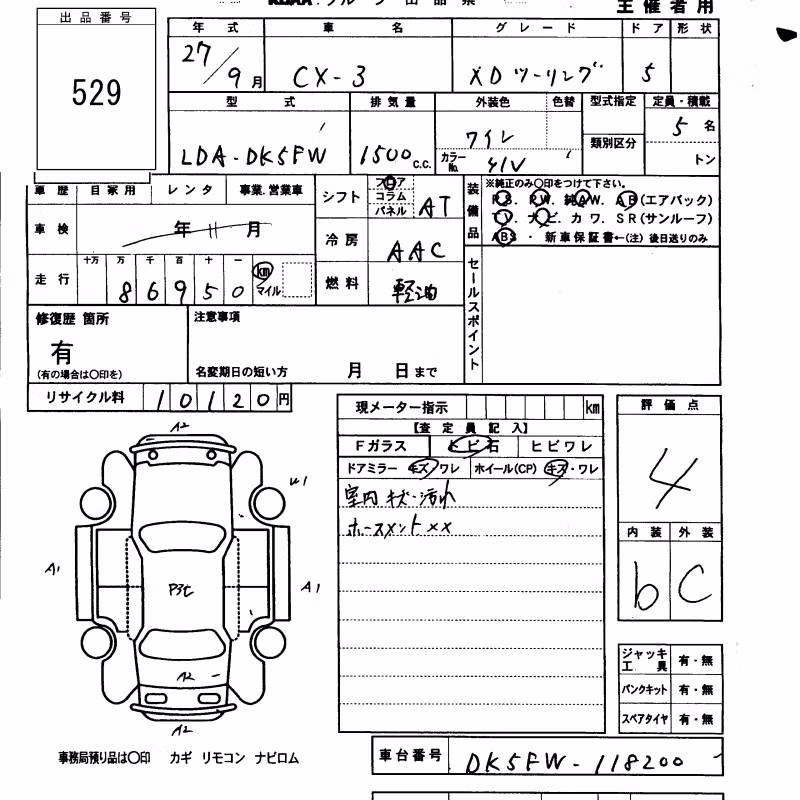 主催者用
出品番号
529
年式 車名 グレード ドア 形状
27/9月 CX-3 XDツーリング 5
型式 排気量 外装色 色替 型式指定 定員・積載
LDA-DK5FW 1500 c.c. カラーNo. 41V 類別区分 5名
トン
車歴 自家用 レンタ 事業.営業車 シフト フロア コラム パネル AT
装備品 ※純正のみ〇印をつけて下さい。
P.S. P.W. 純AW. AB(エアバック)
TV. ナビ. カワ. SR(サンルーフ)
ABS ・ 新車保証書←(注) 後日送りのみ
車検 年 11 月 冷房 AAC
走行 十万 万 千 百 十 一
86950 km マイル 燃料 軽油
セールスポイント
修復歴 箇所 注意事項
有
(有の場合は〇印を) 名変期日の短い方 月 日まで
リサイクル料 10120円
現メーター指示 km
【査定員記入】
Fガラス トビ石 ヒビワレ
ドアミラー キズ ワレ ホイール(CP) キズ・ワレ
室内キズ・汚れ
評価点
4
内装 外装
b C
A2
W1
A1 A1
A2
A2
ジャッキ工具 有・無
パンクキット 有・無
スペアタイヤ 有・無
事務局預り品は〇印 カギ リモコン ナビロム
車台番号 DK5FW-118200